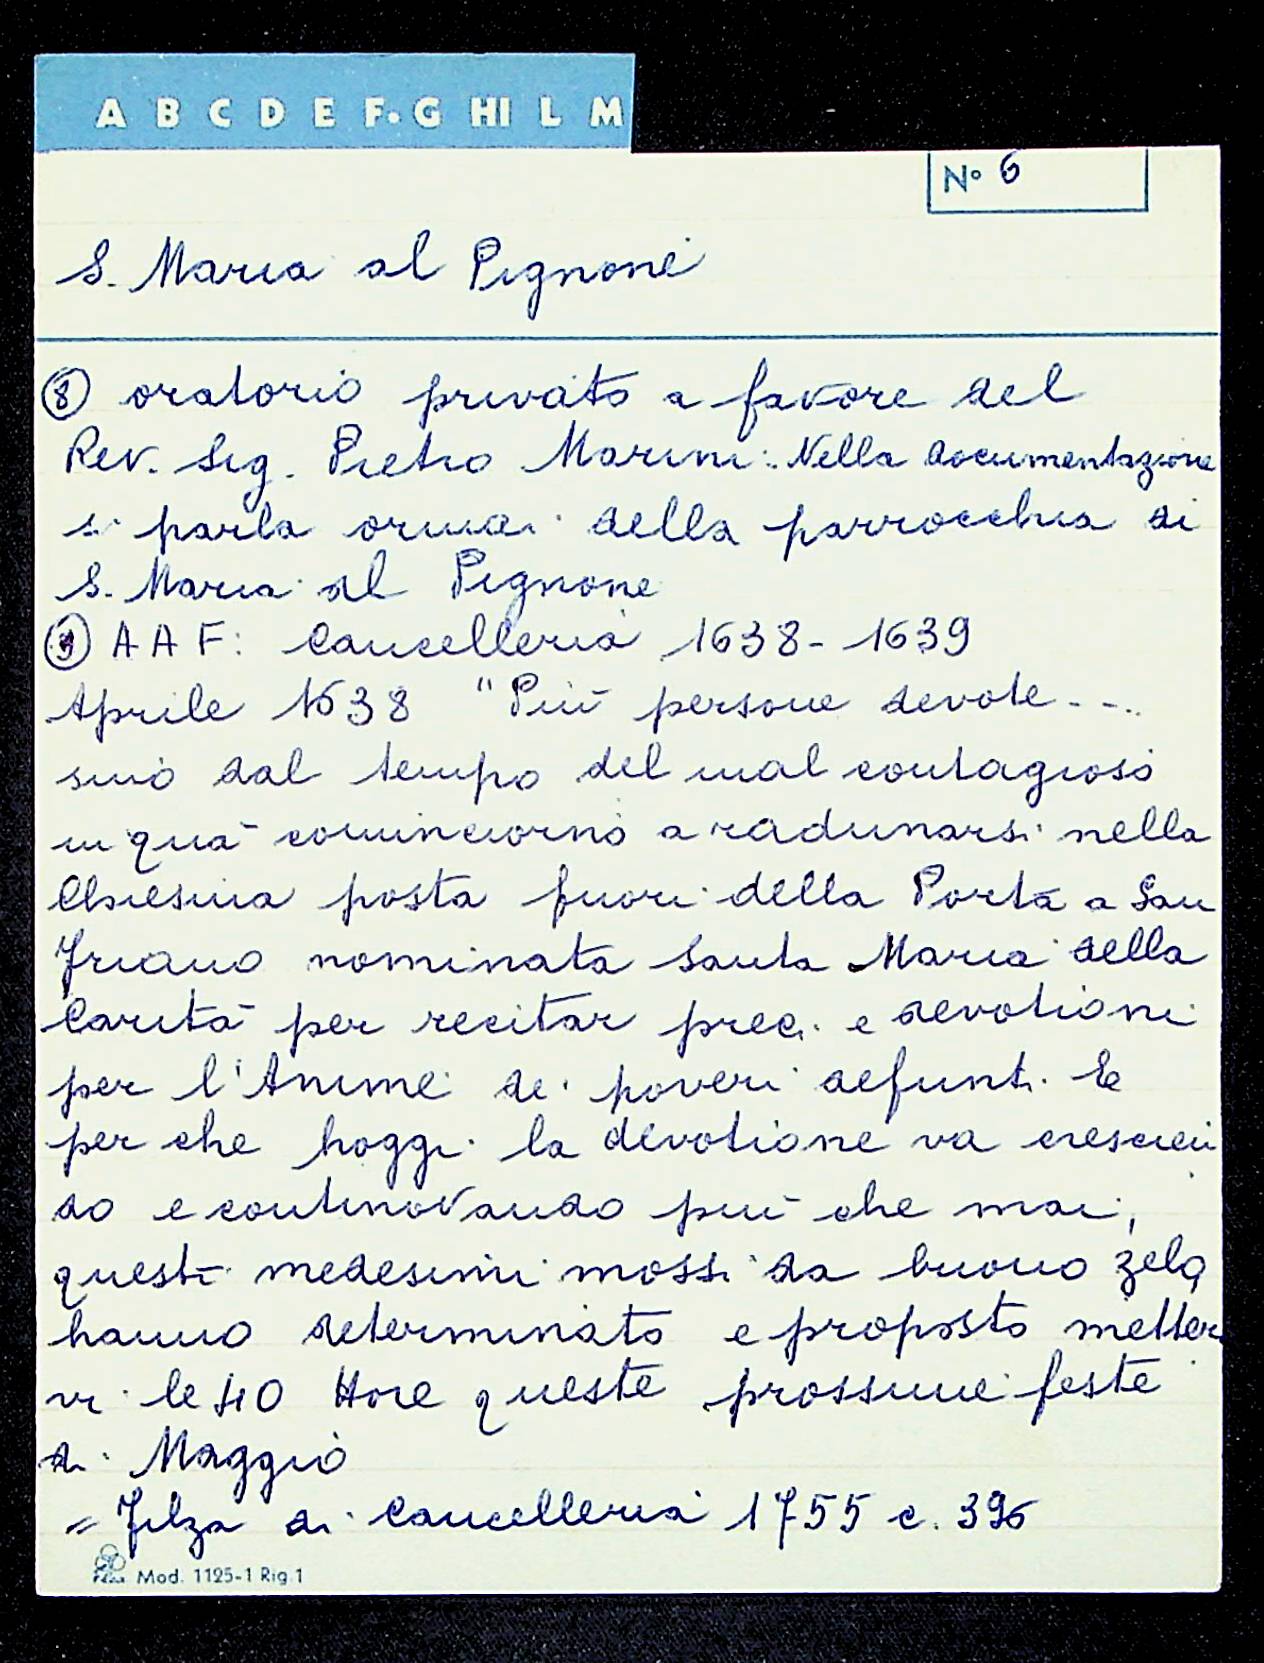 A B C D E F. G HI L M
N° 6
S. Maria al Pignone
⑧ oratorio privato a favore del
Rev. Sig. Pietro Marini. Nella documentazione
si parla ormai della parrocchia di
S. Maria al Pignone
⑨ A A F: Cancelleria 1638-1639
Aprile 1638 "Più persone devote ....
sino dal tempo del mal contagioso
in quà cominciorno a radunarsi nella
Chiesina posta fuori della Porta a San
Friano nominata Santa Maria della
Carità per recitar preci e devotioni
per l'Anime de poveri defunti. E
per che hoggi la devotione va crescien
do e continovando più che mai,
questi medesimi mossi da buono zelo
hanno determinato e proposto metter
vi le 40 Hore queste prossime feste
di Maggio
= Filza di Cancelleria 1755 c. 396
Mod. 1125-1 Rig.1